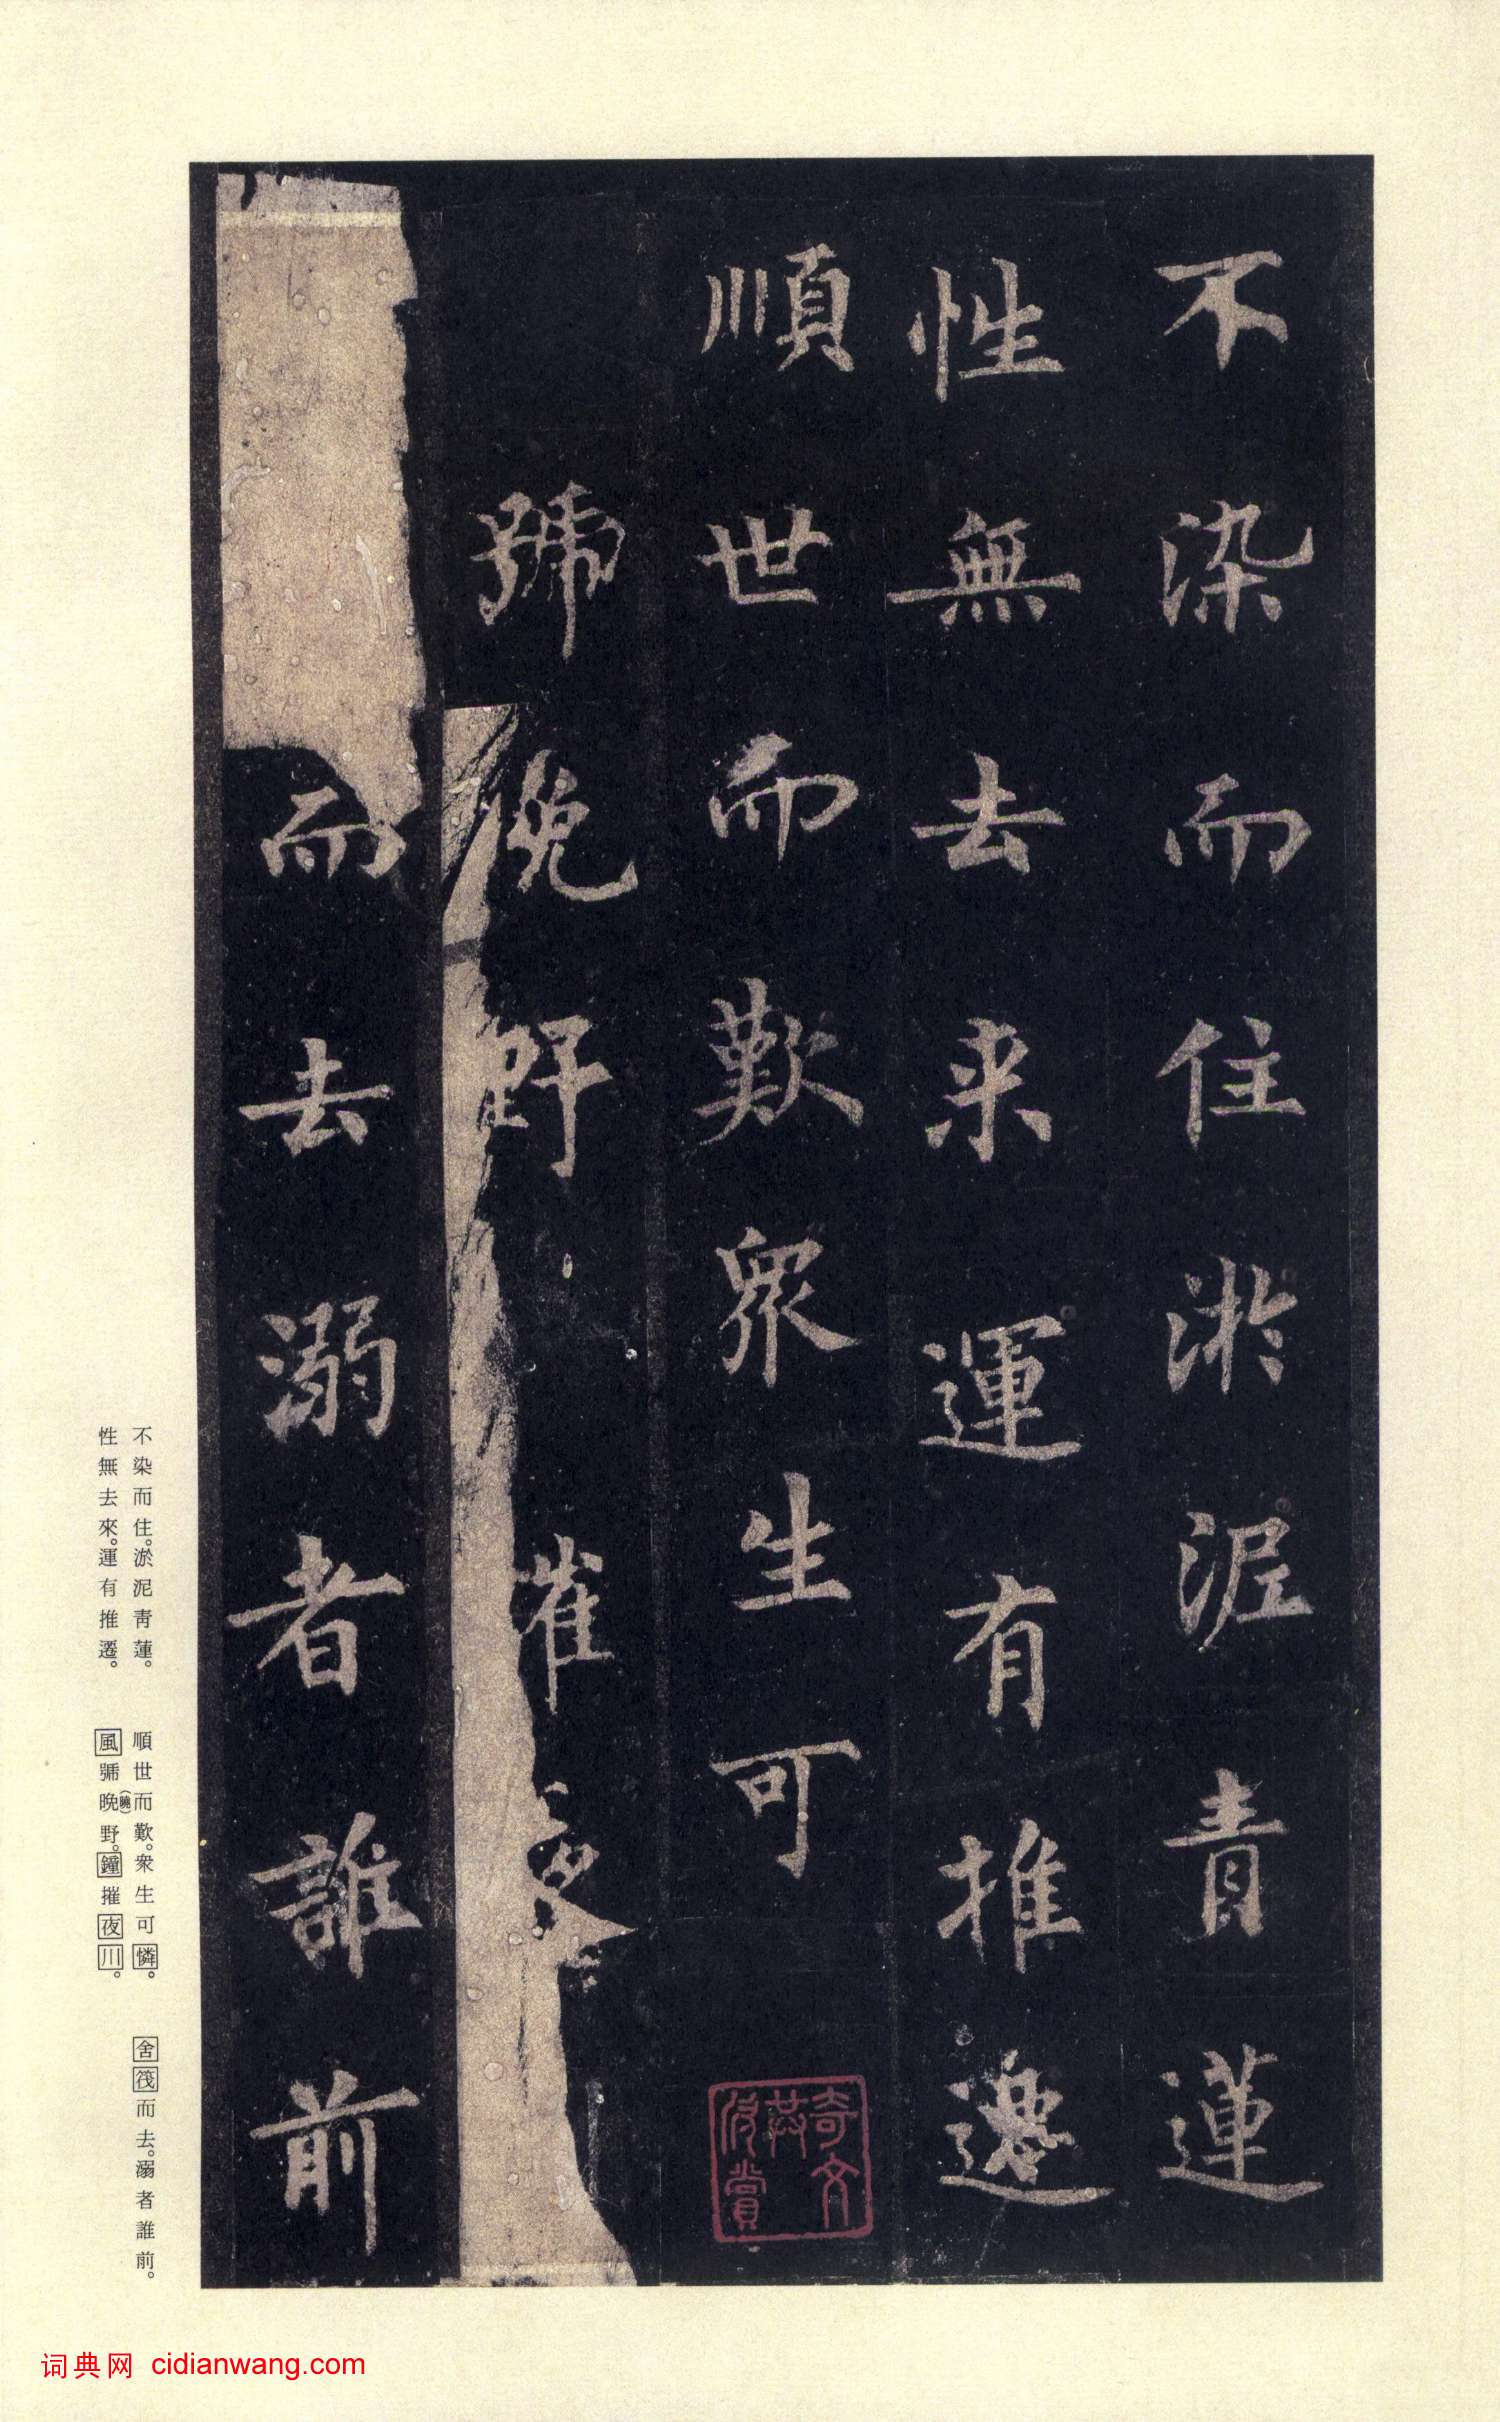 不染而住淤泥青蓮
性無去来運有推遷
順世而歎衆生可
號晚野摧夜
而去溺者誰前
奇文共欣賞
不染而住。淤泥青蓮。
性無去來。運有推遷。
順世而歎。衆生可憐。
風號晚(曉)野。鐘摧夜川。
舍筏而去。溺者誰前。
词典网 cidianwang.com